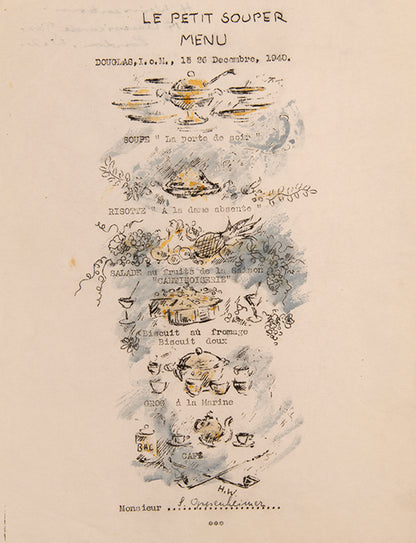 LE PETIT SOUPER
MENU
DOUGLAS, I.o.M., 15 26 Decembre, 1940.
SOUPE " La porte de soir "
RISOTTE " A la dame absente "
SALADE au fruits de la saison
Biscuit au fromage
Biscuit doux
GROG à la Marine
CAFE
H.W
Monsieur S. Oppenheimer
ooo